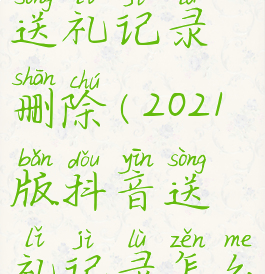 sòng lǐ jì lù
送礼记录
shān chú
删除(2021
bǎn dǒu yīn sòng
版抖音送
lǐ jì lù zěn me
礼记录怎么